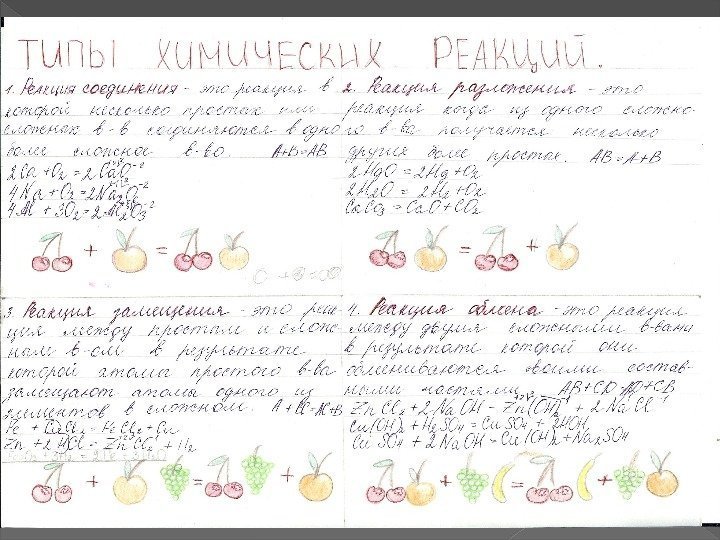 ТИПЫ ХИМИЧЕСКИХ РЕАКЦИЙ.
1. Реакция соединения - это реакция в
которой несколько простых или
сложных в-в соединяются в одно
более сложное в-во. A+B=AB
2Ca + O₂ = 2CaO
4Na + O₂ = 2Na₂O
4Al + 3O₂ = 2Al₂O₃
+ =
2. Реакция разложения - это
реакция когда из одного сложно-
го в-ва получается несколько
других более простых. AB=A+B
2HgO = 2Hg + O₂
2H₂O = 2H₂ + O₂
CaCO₃ = CaO + CO₂
= +
3. Реакция замещения - это реак-
ция между простым и слож-
ным в-ом в результате
которой атомы простого в-ва
замещают атомы одного из
элементов в сложном. A + BC = AC + B
Fe + CuCl₂ = FeCl₂ + Cu
Zn + 2HCl = ZnCl₂ + H₂
+ = +
4. Реакция обмена - это реакция
между двумя сложными в-вами
в результате которой они
обмениваются своими состав-
ными частями AB+CD=AD+CB
ZnCl₂ + 2NaOH = Zn(OH)₂ + 2NaCl
Cu(OH)₂ + H₂SO₄ = CuSO₄ + 2HOH
CuSO₄ + 2NaOH = Cu(OH)₂ + Na₂SO₄
+ = +